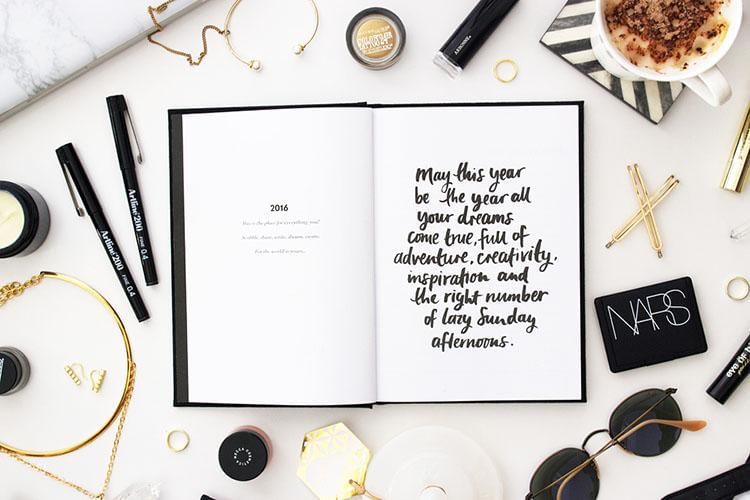 2016
This is the place for everything you!
Scribble, share, write, dream, create.
For the world is yours...
May this year
be the year all
your dreams
come true, full of
adventure, creativity,
inspiration and
the right number
of lazy Sunday
afternoons.
Artline 200 FINE 0.4
Artline 200 FINE 0.4
NARS
EYE OF
MECCA COSMETICA
MAYBELLINE